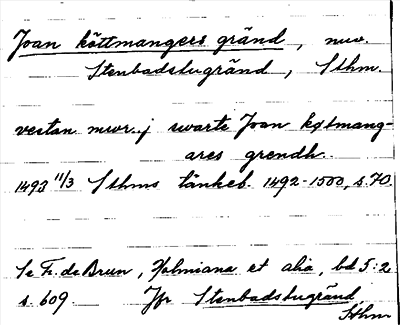 Joan köttmangers gränd, nuv.
Stenbadstugränd, Sthm.
vestan mwr j swarte Joan køtmang-
ares grendh.
1493 11/3 Sthms tänkeb. 1492-1500, s. 70.
Se Fr. de Brun, Holmiana et alia, bd 5:2
s. 609. Jfr Stenbadstugränd
Sthm